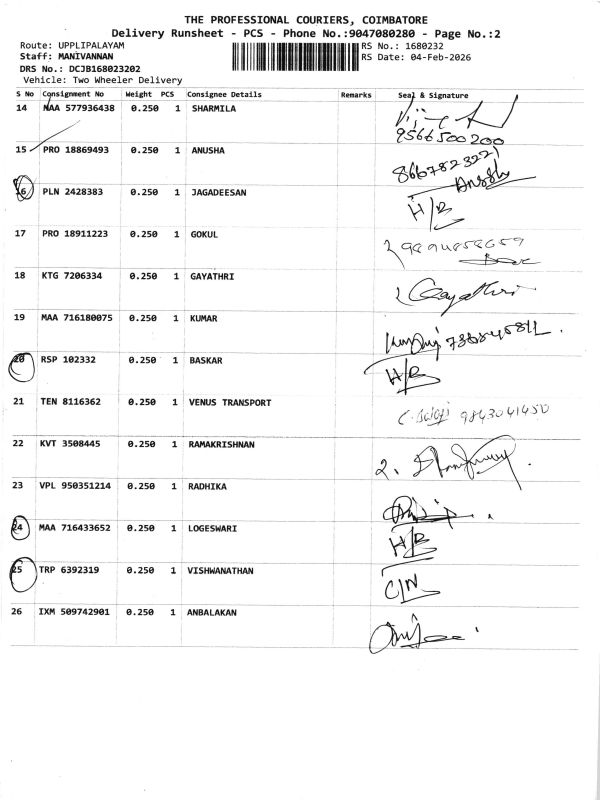 THE PROFESSIONAL COURIERS, COIMBATORE
Delivery Runsheet - PCS - Phone No.:9047080280 - Page No.:2
Route: UPPLIPALAYAM RS No.: 1680232
Staff: MANIVANNAN RS Date: 04-Feb-2026
DRS No.: DCJB168023202
Vehicle: Two Wheeler Delivery
S No Consignment No Weight PCS Consignee Details Remarks Seal & Signature
14 MAA 577936438 0.250 1 SHARMILA
9566500200
15 PRO 18869493 0.250 1 ANUSHA
8667823221
16 PLN 2428383 0.250 1 JAGADEESAN H/R
17 PRO 18911223 0.250 1 GOKUL
18 KTG 7206334 0.250 1 GAYATHRI Gayathri
19 MAA 716180075 0.250 1 KUMAR
20 RSP 102332 0.250 1 BASKAR H/R
21 TEN 8116362 0.250 1 VENUS TRANSPORT 9843041450
22 KVT 3508445 0.250 1 RAMAKRISHNAN
23 VPL 950351214 0.250 1 RADHIKA
24 MAA 716433652 0.250 1 LOGESWARI H/R
25 TRP 6392319 0.250 1 VISHWANATHAN C/N
26 IXM 509742901 0.250 1 ANBALAKAN